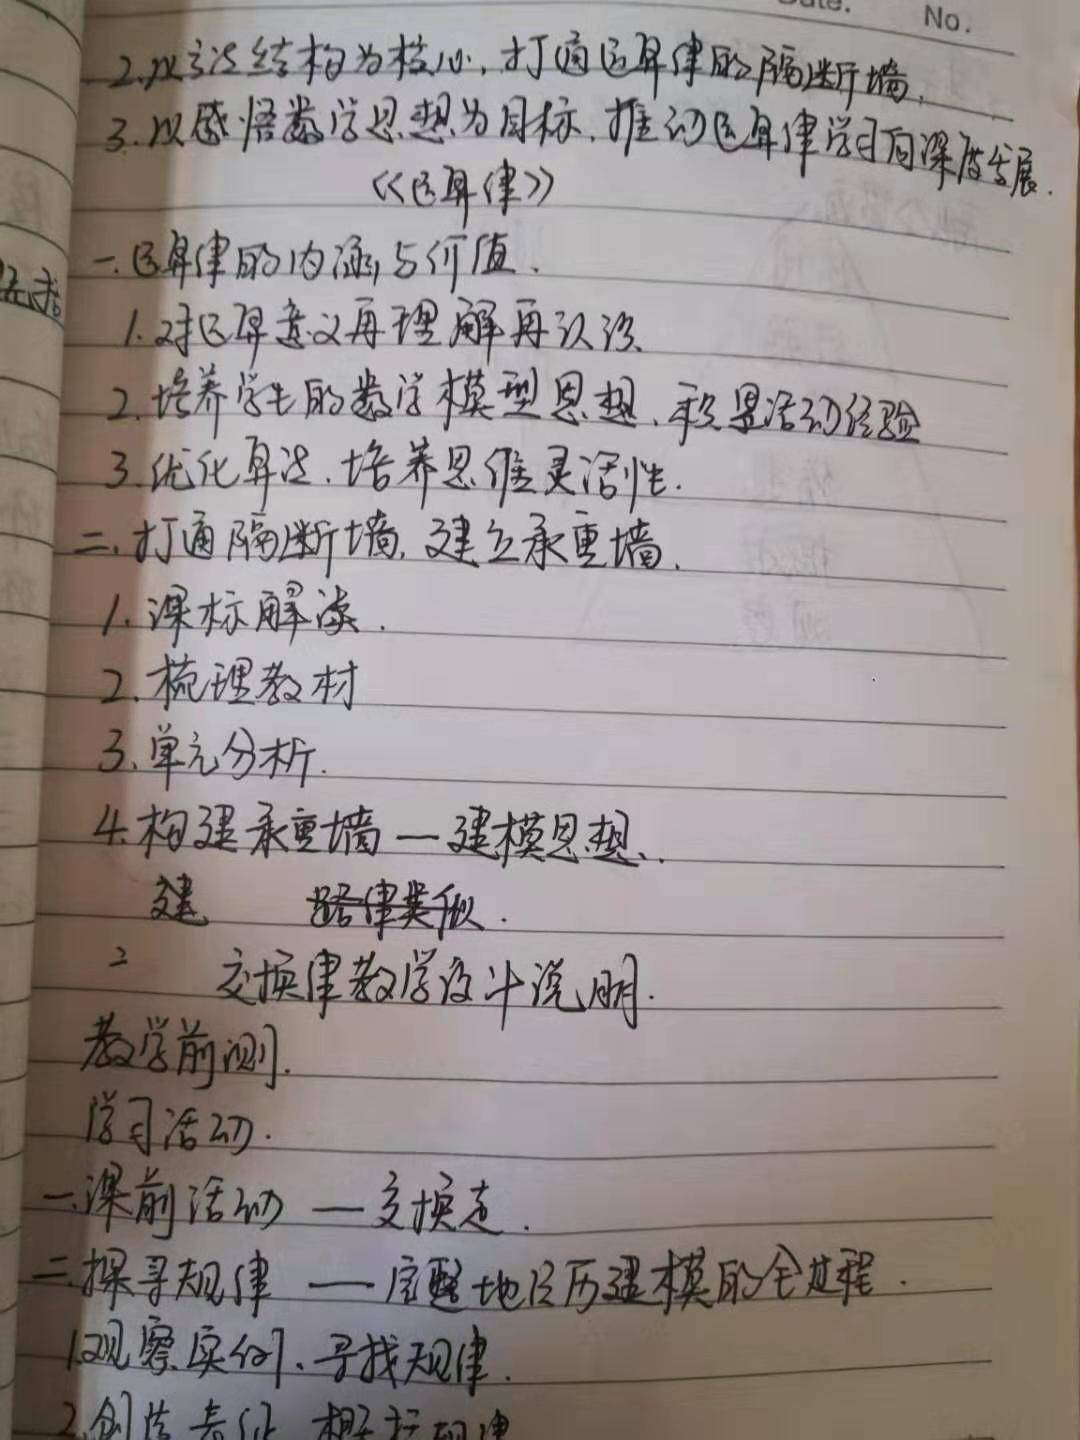 Date. No.
2.以方法结构为核心,打通运算律的隔断墙,
3.以感悟数学思想为目标,推动运算律学习向深度发展.
《运算律》
一.运算律的内涵与价值.
1.对运算意义再理解再认识
2.培养学生的数学模型思想,积累活动经验
3.优化算法.培养思维灵活性.
二.打通隔断墙,建立承重墙.
1.课标解读.
2.梳理教材
3.单元分析.
4.构建承重墙—建模思想.
建
交换律教学设计说明.
教学前测.
学习活动.
一.课前活动 —交换
二.探寻规律 —完整地经历建模的全过程.
1.观察实例,寻找规律.
2.创造表征 概括规律